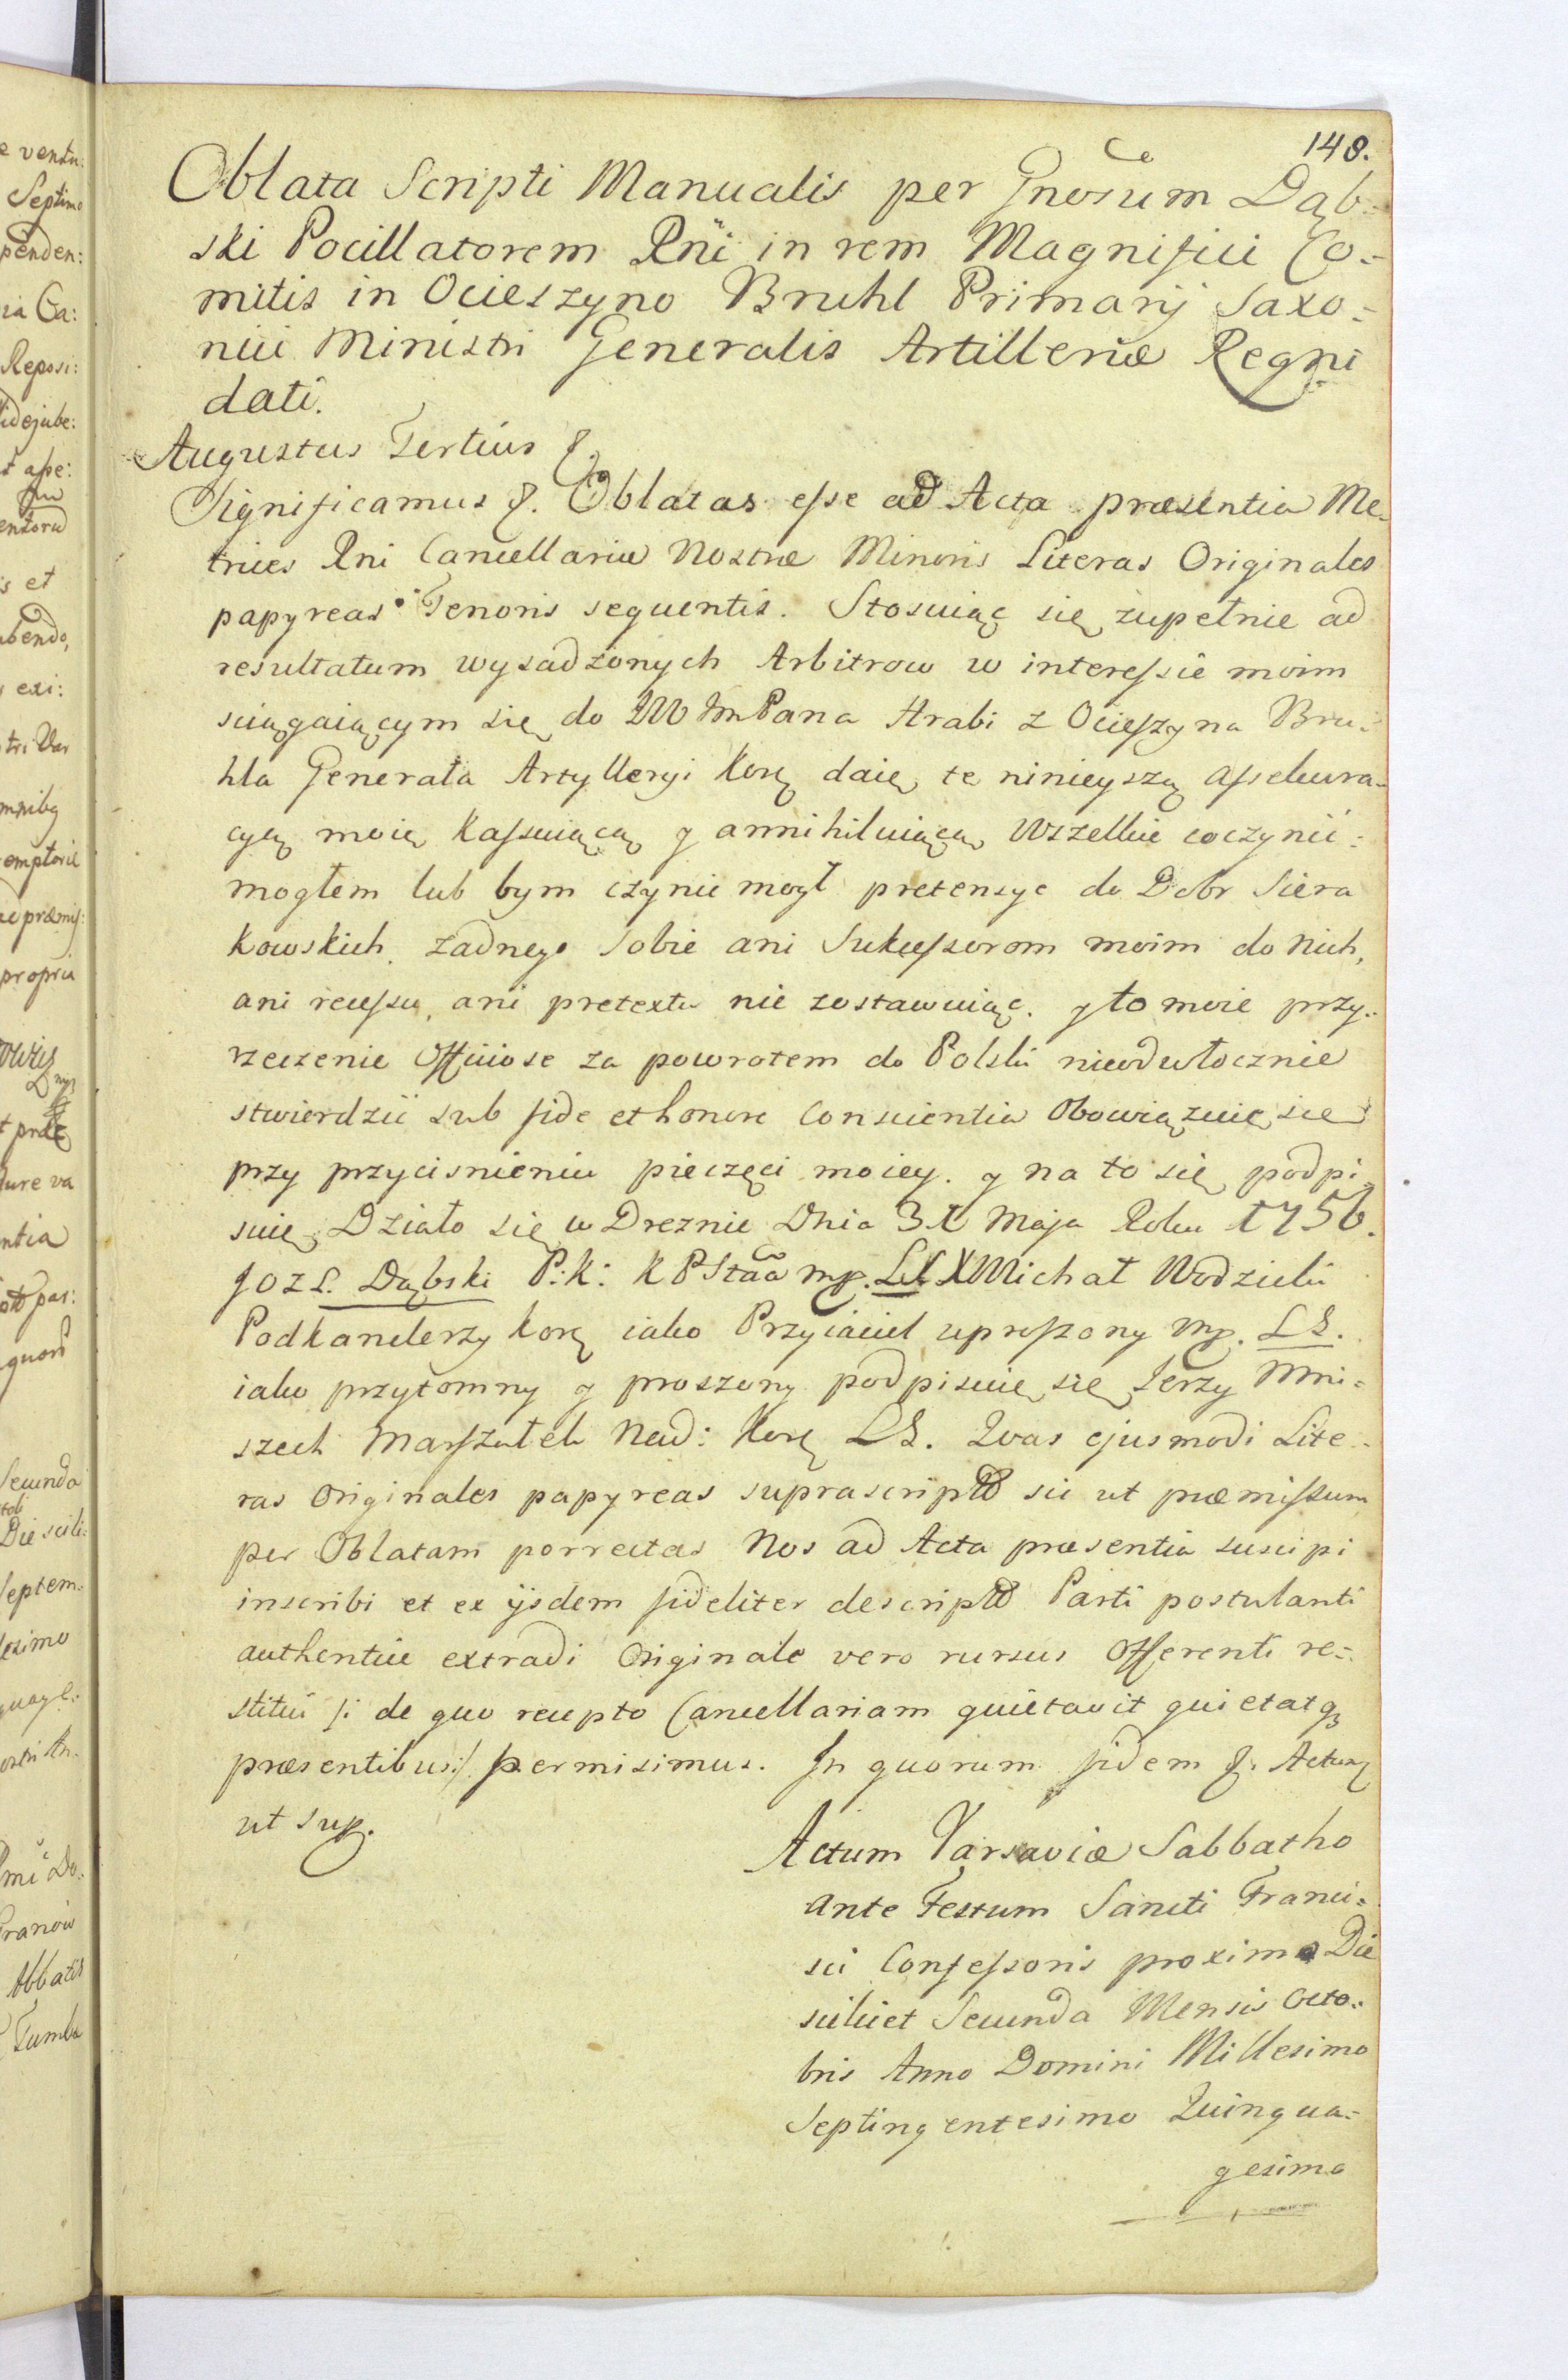 148.
Oblata Scripti Manualis per Gnosum Dąb-
ski Pocillatorem Rni in rem Magnifici Co-
mitis in Ocieszyno Bruhl Primarij Saxo-
nici Ministri Generalis Artilleriæ Regni
dati.
Augustus Tertius &.
Significamus &. Oblatas esse ad Acta præsentia Me-
trices Rni Cancellariæ Nostræ Minoris Literas Originales
papyreas Tenoris sequentis. Stosuiąc się zupełnie ad
resultatum wysadzonych Arbitrow w interessie moim
sciągaiącym się do JW Jm Pana Hrabi z Ocieszyna Bru-
hla Generała Artylleryi Korę daię te ninieyszą assekura-
cyą moię kassuiącą y annihiluiącą wszelkie co czynić
mogłem lub bym czynic mogł pretensye do Dobr Siera
kowskich. zadnego sobie ani Sukcessorom moim do nich,
ani recessu, ani pretextu nie zostawuiąc. y to moie przy-
rzeczenie Officiose za powrotem do Polski nieodwłocznie
stwierdzić sub fide et honore conscientia Obowiązuię się
przy przycisnieniu pieczęci moiey. y na to się podpi-
suię. Działo się w Dreznie Dnia 31 Maja Roku 1756.
Joz L. Dąbski P: K: K P Staa mp. LS X Michał Wodzicki
Podkanclerzy Korę iako Przyiaciel uproszony mp. LS.
iako przytomny y proszony podpisuię się Jerzy Mni-
szech Marszałek Nad: Korę LS. Quas ejusmodi Lite-
ras Originales papyreas suprascriptas sic ut præmissum
per Oblatam porrectas Nos ad Acta præsentia suscipi
inscribi et ex ijsdem fideliter descriptas Parti postulanti
authentice extradi Originale vero rursus Offerenti re-
stitui /: de quo recepto Cancellariam quietavit quietatq
præsentibus:/ permisimus. In quorum fidem &. Actum
ut sup.
Actum Varsaviæ Sabbatho
ante Festum Sancti Franci-
sci Confessoris proximo Die
scilicet Secunda Mensis Octo-
bris Anno Domini Millesimo
Septingentesimo Quinqua-
gesimo